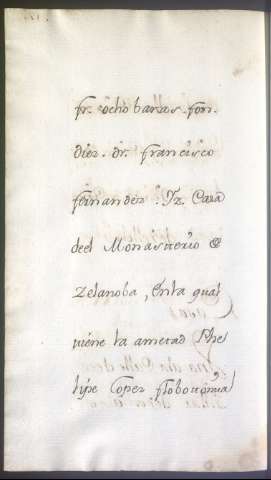 fr. ocho baras. fon.
diez. dr. francisco
fernandez. Tz. Casa
deel Monasterio de
Zelanoba, enla qual
tiene la ametad Phe
lipe Lopez flobotomia